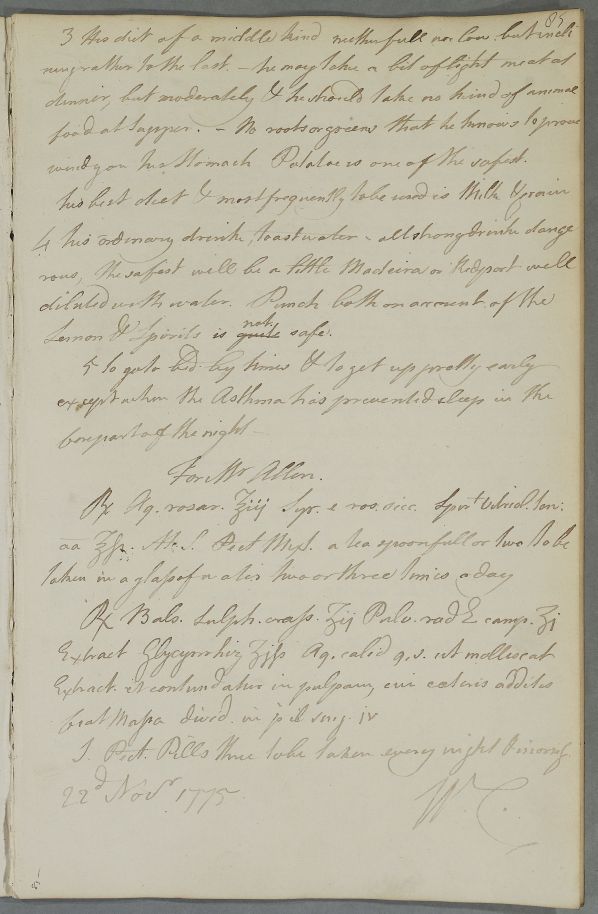 85
3 His diet of a middle kind neither full nor low but incli
ning rather to the last. - he may take a bit of light meat at
dinner, but moderately & he should take no kind of animal
food at supper. - No roots or greens that he knows to prove
windy on his stomach Potatoes is one of the safest.
his best diet & most frequently to be used is Milk & grain
4 his ordinary drink, toast water - all strong drink dange
rous, the safest will be a little Madeira or Red port well
diluted with water. Punch both on account of the
Lemon & Spirits is quite not safe.
5 to go to bed by times & to get up pretty early
except when the Asthma has prevented sleep in the
forepart of the night -
For Mr Allen.
Rx Aq. rosar. ℥iij Syr. e ros. sicc. Spirt Vitriol. ten:
aa ℥ſs. M. S. Pect Mixt. a tea spoonfull or two to be
taken in a glass of water two or three times a day
Rx Bals. Sulph. crass. ʒij Pulv. rad E. camp. ʒj
Extract Glycyrrhiz ʒjſs Aq. calid q.s. ut mollescat
Extract. et contundatur in pulpam, cui cæteris additis
fiat Massa divid. in pil sing. iv
S. Pect. Pills three to be taken every night & morng
22d Novr 1775 W. C.